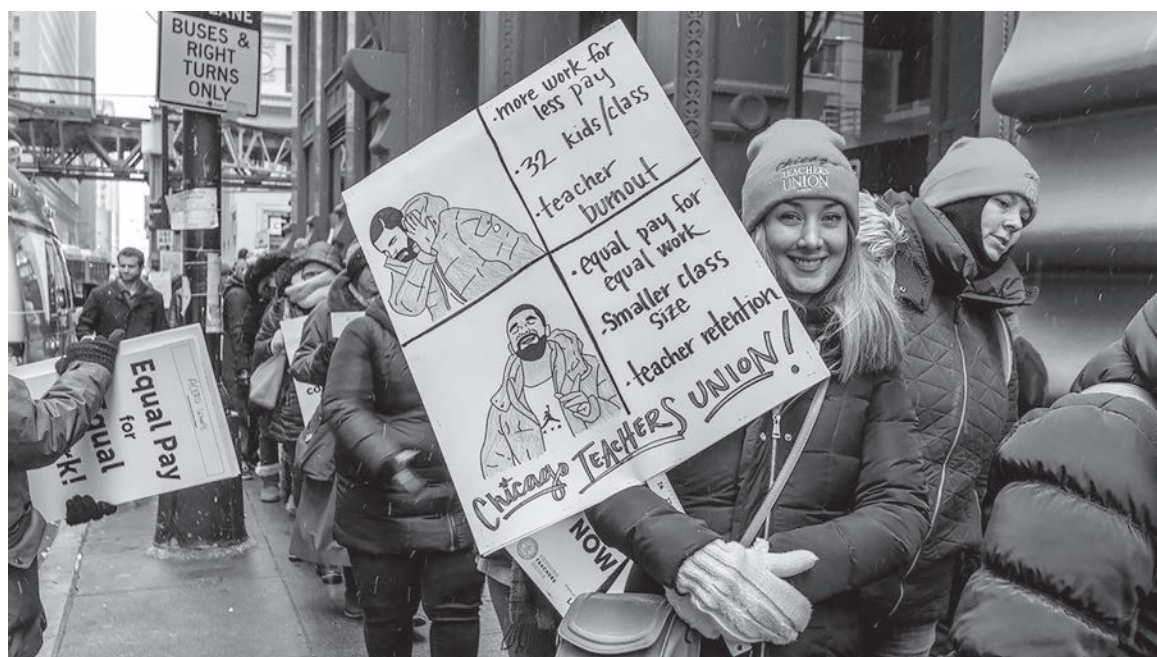 LANE
BUSES &
RIGHT
TURNS
ONLY
·more work for
less pay
·32 kids/class
·teacher
burnout
·equal pay for
equal work
·Smaller class
size
·teacher retention
Chicago TEACHERS UNION!
TEACHERS
UNION
Equal Pay
for
Equal
NOW
TEACHERS